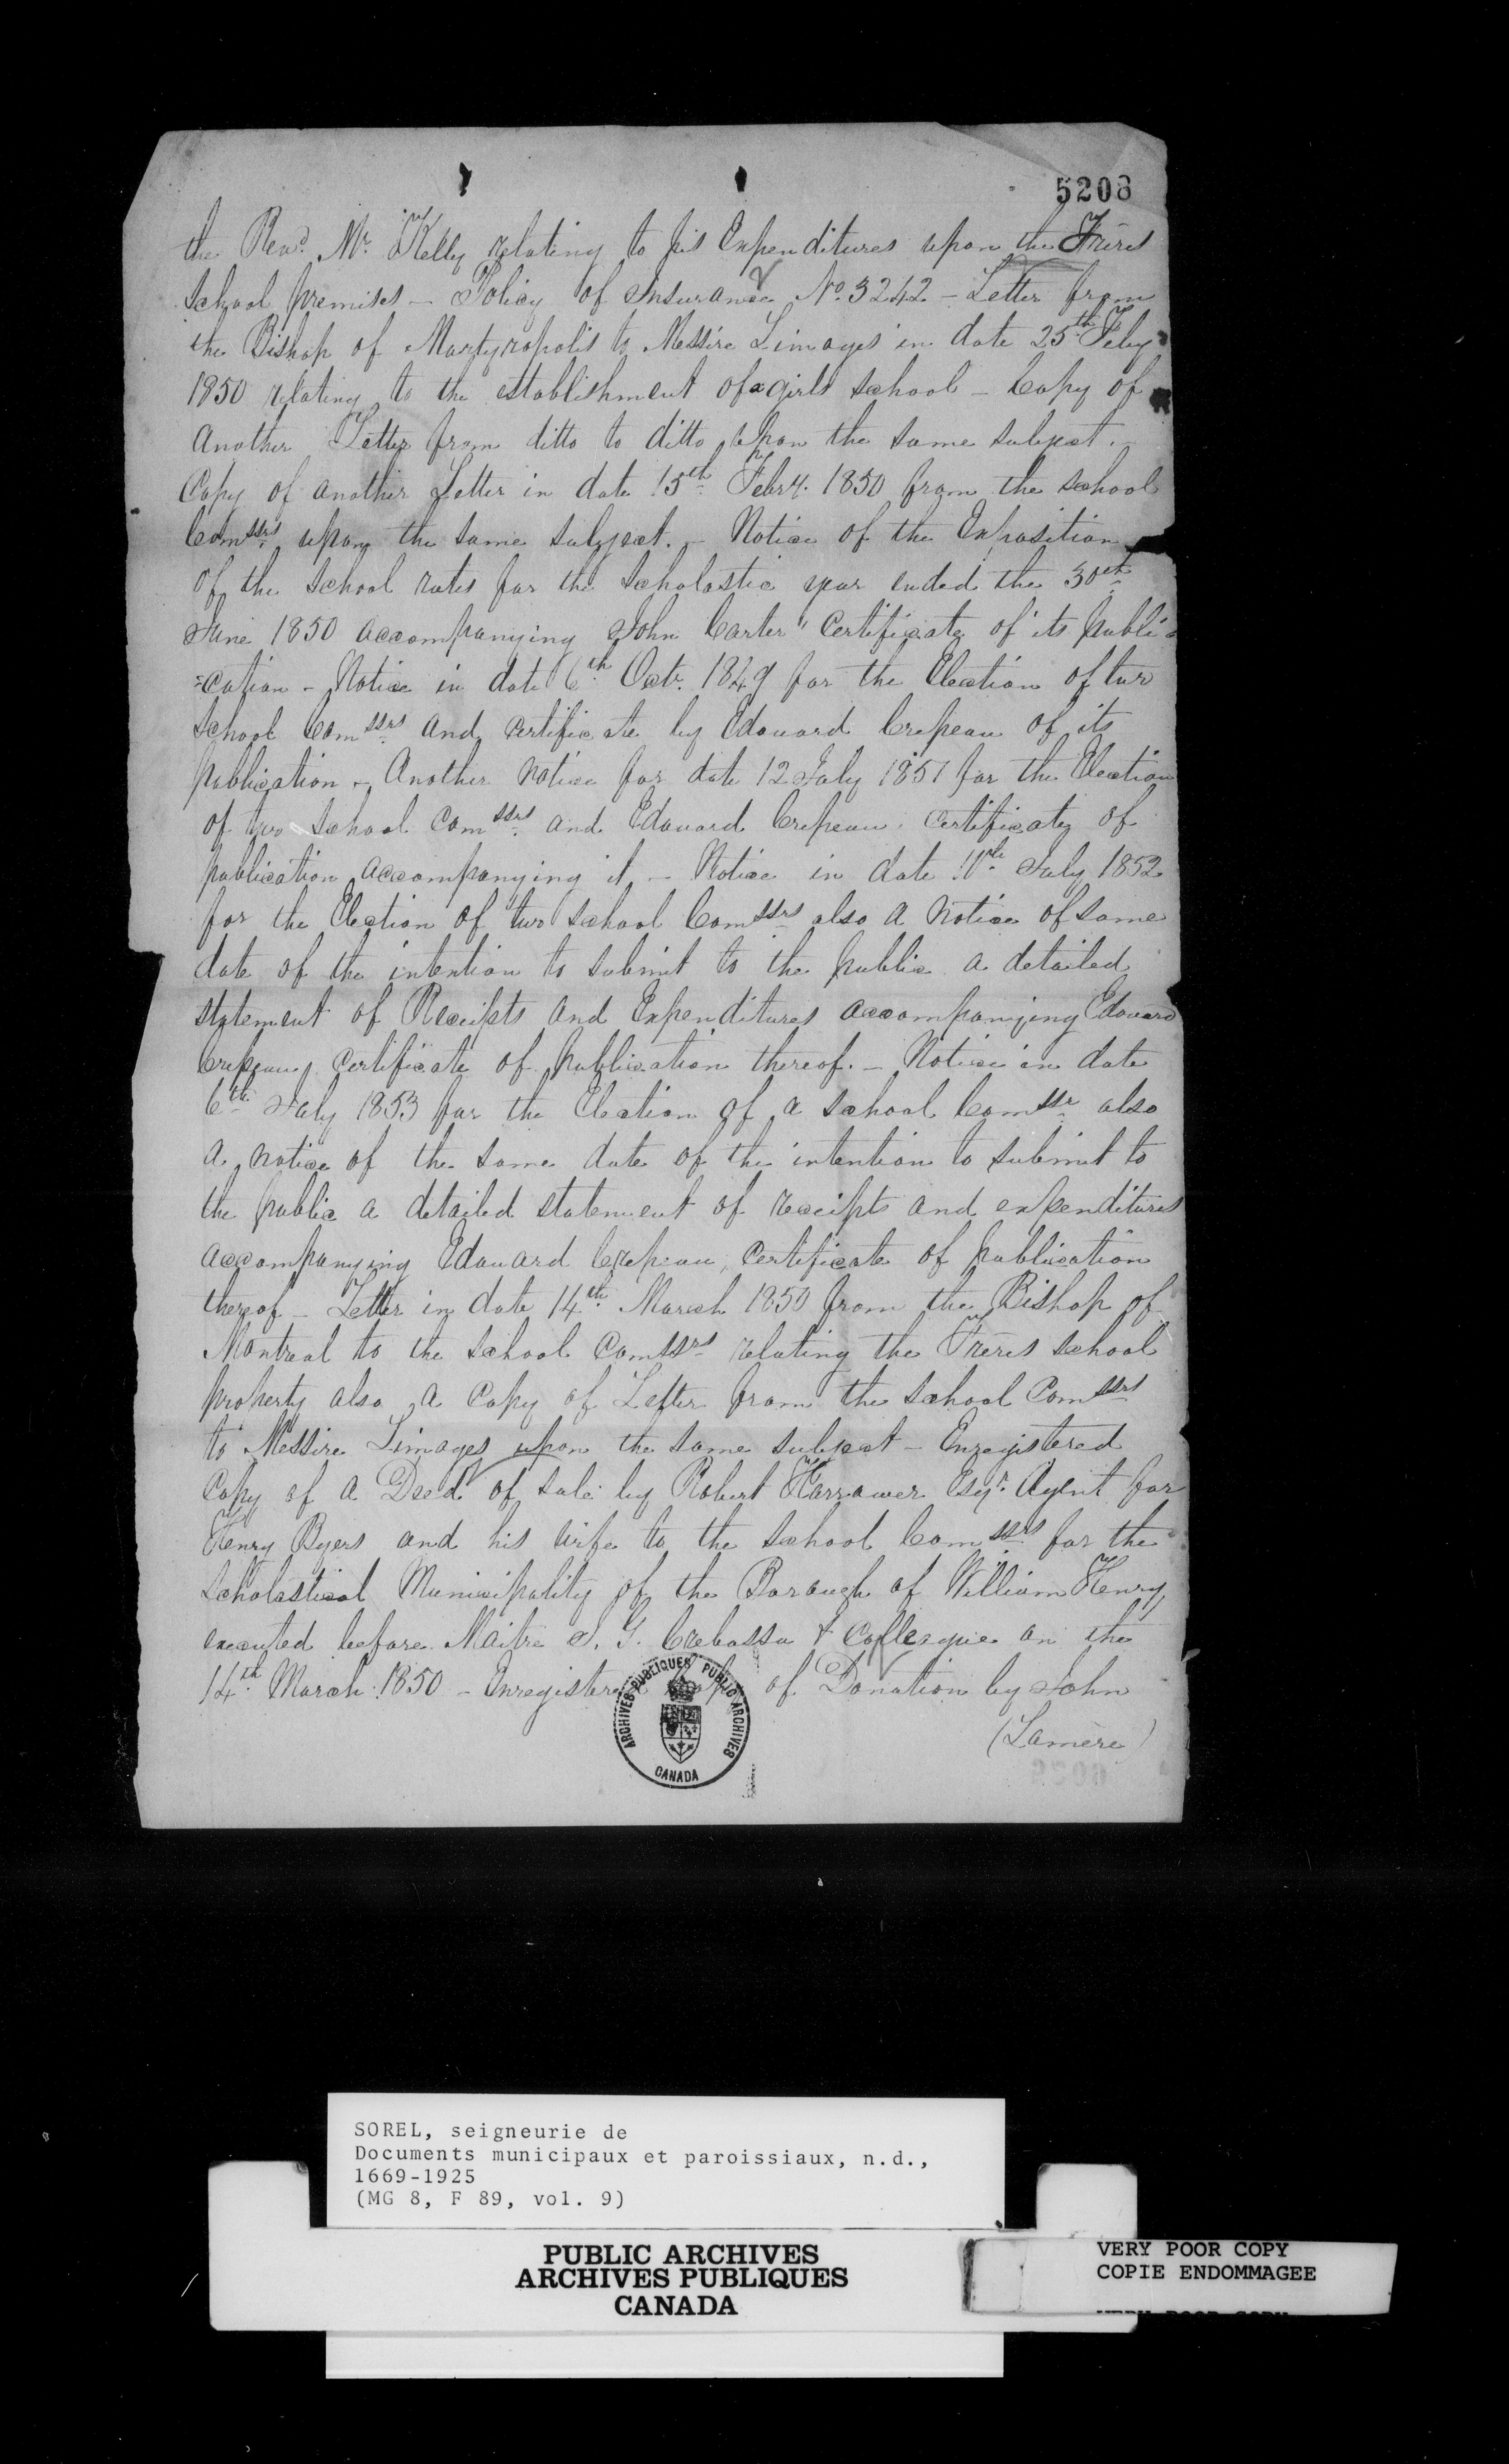 5208
the Revd. Mr. Kelly relating to his Expenditures upon the Frères
School premises – Policy of Insurance No. 3242 – Letter from
the Bishop of Martyropolis to Messire Limoges in date 25th Feby
1850 relating to the establishment of a girls school – Copy of
Another Letter from ditto to ditto upon the same subject. –
Copy of another Letter in date 15th Febry. 1850 from the school
Comssrs upon the same subject. – Notice of the Exposition
of the School rates for the Scholastic year ended the 30th
June 1850 accompanying John Carter's Certificate of its publi=
=cation – Notice in date 6th Octr. 1849 for the Election of two
School Comssrs and certificate by Edouard Crepeau of its
publication – Another notice for date 12 July 1851 for the Election
of two School Comssrs and Edouard Crepeau's certificate of
publication accompanying it – Notice in date 10th July 1852
for the Election of two School Comssrs also a notice of same
date of the intention to submit to the public a detailed
statement of Receipts and Expenditures accompanying Edouard
Crepeau's certificate of publication thereof. – Notice in date
6th July 1853 for the Election of a school Comssr also
a notice of the same date of the intention to submit to
the public a detailed statement of receipts and expenditures
accompanying Edouard Crepeau's Certificate of publication
thereof – Letter in date 14th March 1850 from the Bishop of
Montreal to the School Comssrs relating the Frères school
property also a Copy of Letter from the School Comssrs
to Messire Limoges upon the same subject – Enregistered
Copy of a Deed of sale by Robert Harrower Esqr. Agent for
Henry Byers and his wife to the School Comssrs for the
Scholastical Municipality of the Borough of William Henry,
executed before Maitre J. G. Crebassa & Colleague on the
14th March 1850 – Enregistered Copy of Donation by John
(Lamère)
ARCHIVES PUBLIQUES PUBLIC ARCHIVES
CANADA
SOREL, seigneurie de
Documents municipaux et paroissiaux, n.d.,
1669-1925
(MG 8, F 89, vol. 9)
PUBLIC ARCHIVES
ARCHIVES PUBLIQUES
CANADA
VERY POOR COPY
COPIE ENDOMMAGEE
VERY POOR COPY